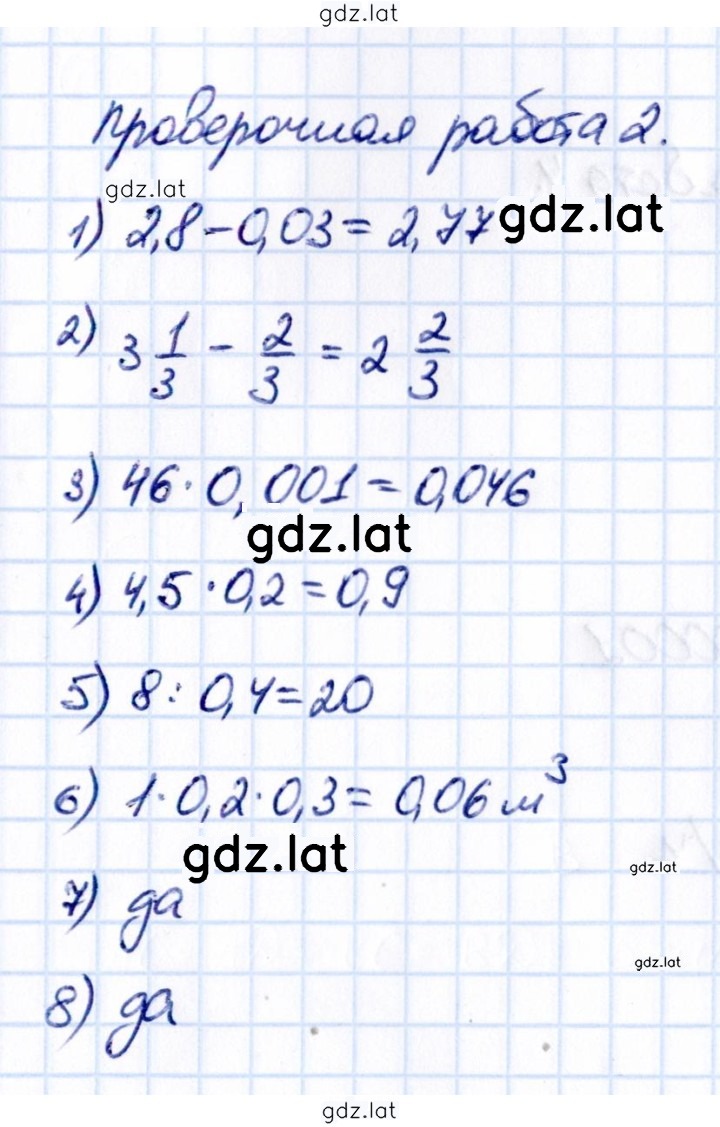 gdz.lat
Проверочная работа 2.
gdz.lat
1) 2,8 - 0,03 = 2,77 gdz.lat
2) 3 1/3 - 2/3 = 2 2/3
3) 46 · 0,001 = 0,046
gdz.lat
4) 4,5 · 0,2 = 0,9
5) 8 : 0,4 = 20
6) 1 · 0,2 · 0,3 = 0,06 м³
gdz.lat
gdz.lat
7) да
gdz.lat
8) да
gdz.lat